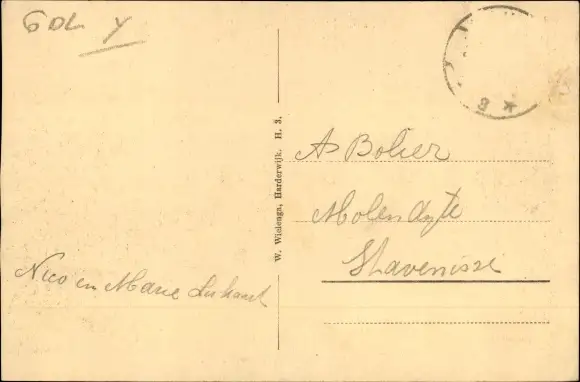 GDL Y
W. Wielenga, Harderwijk. H. 3.
A Bolier
Molendyk
Stavenisse
Nico en Marie